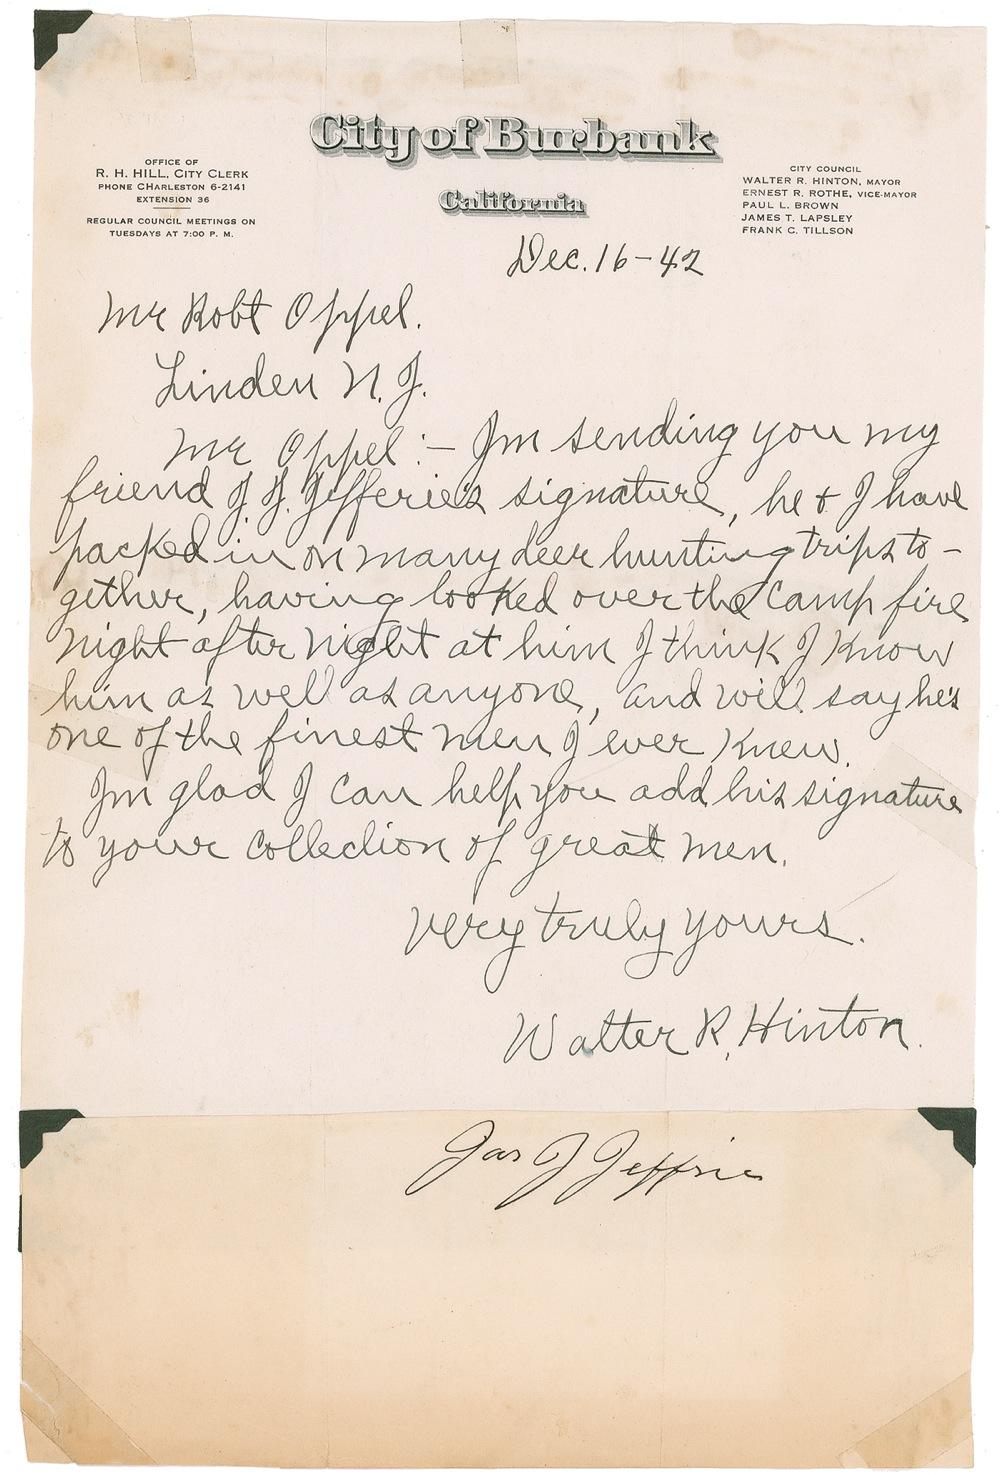 City of Burbank
California
OFFICE OF
R. H. HILL, CITY CLERK
PHONE CHARLESTON 6-2141
EXTENSION 36
REGULAR COUNCIL MEETINGS ON
TUESDAYS AT 7:00 P. M.
CITY COUNCIL
WALTER R. HINTON, MAYOR
ERNEST R. ROTHE, VICE-MAYOR
PAUL L. BROWN
JAMES T. LAPSLEY
FRANK C. TILLSON
Dec. 16-42
Mr Robt Oppel.
Linden N. J.
Mr Oppel:- Im sending you my
friend J. J. Jefferie's signature, he & I have
packed in on many deer hunting trips to-
gether, having looked over the camp fire
night after night at him I think I know
him as well as anyone, and will say he's
one of the finest men I ever knew.
Im glad I can help you add his signature
to your collection of great men.
Very truly yours.
Walter R. Hinton.
Jas J Jeffries